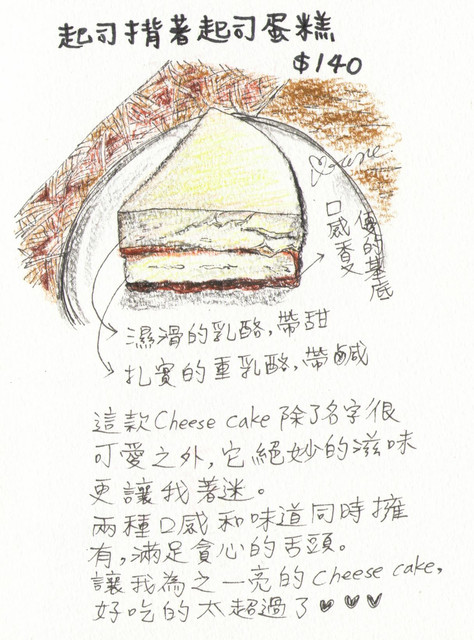 起司揹著起司蛋糕
$140
口感香又
優的基底
濕滑的乳酪,帶甜
扎實的重乳酪,帶鹹
這款Cheese cake 除了名字很
可愛之外,它絕妙的滋味
更讓我著迷。
兩種口感和味道同時擁
有,滿足貪心的舌頭。
讓我為之一亮的cheese cake,
好吃的太超過了♥♥♥